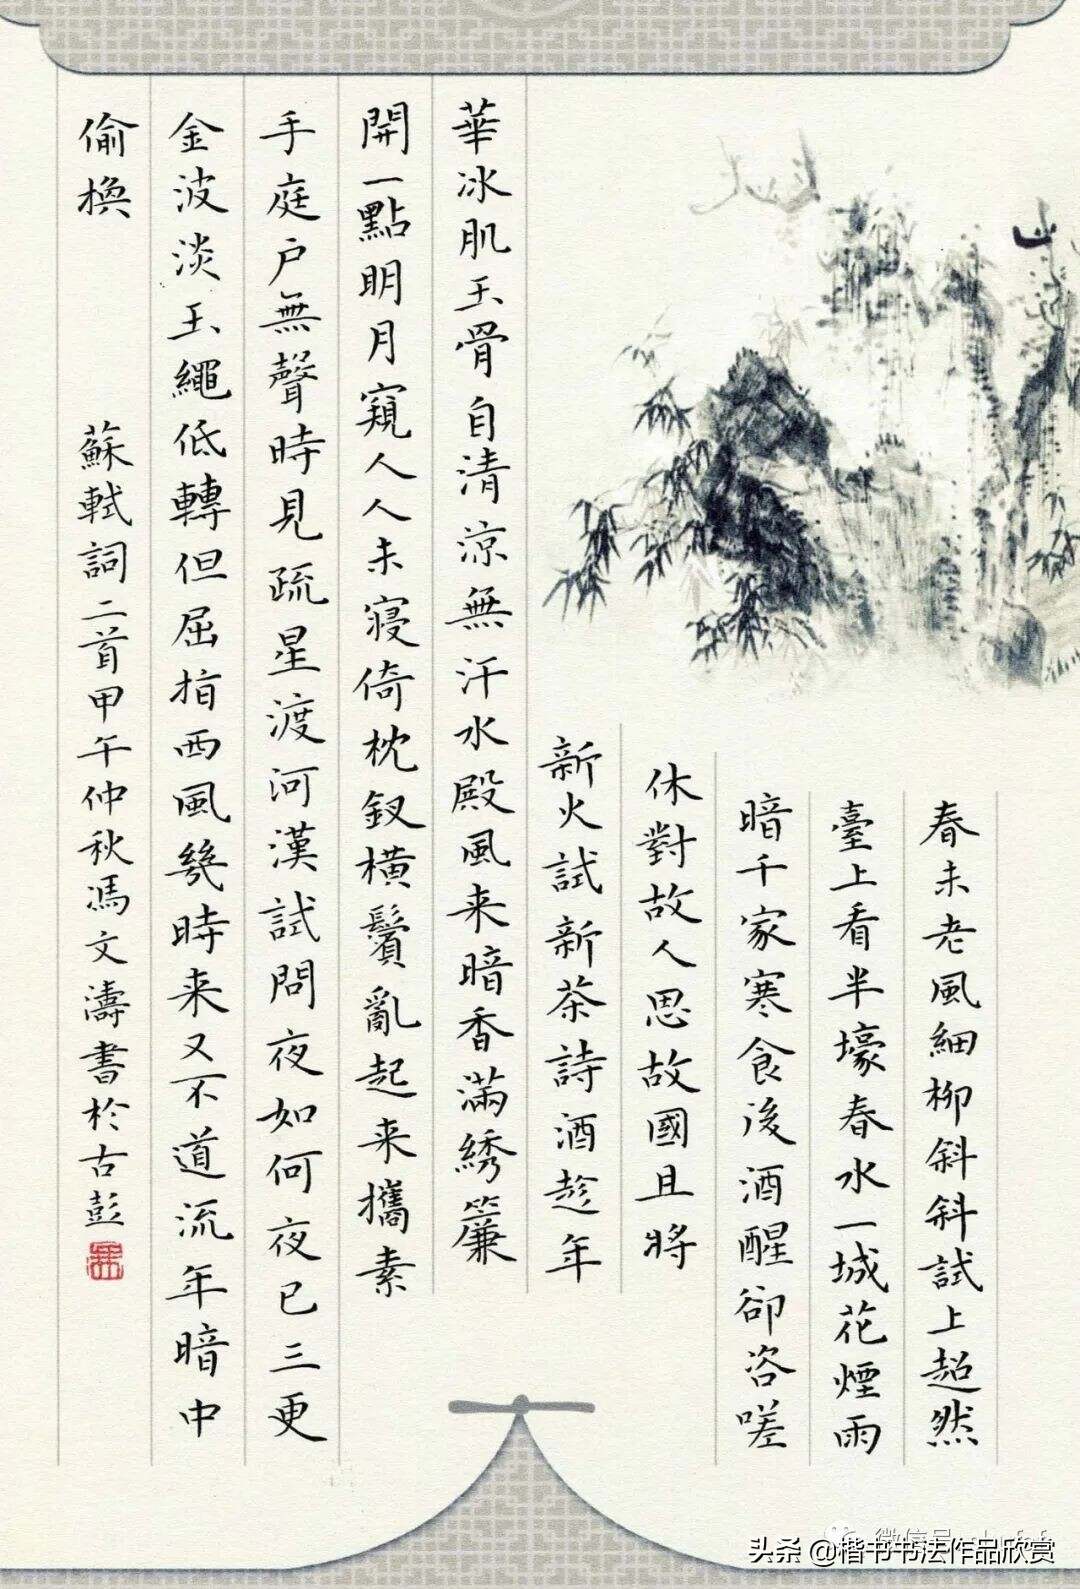 春未老風細柳斜斜試上超然
臺上看半壕春水一城花煙雨
暗千家寒食後酒醒卻咨嗟
休對故人思故國且將
新火試新茶詩酒趁年
華冰肌玉骨自清涼無汗水殿風来暗香滿綉簾
開一點明月窺人人未寢倚枕釵橫鬢亂起来攜素
手庭戶無聲時見疏星渡河漢試問夜如何夜已三更
金波淡玉繩低轉但屈指西風幾時来又不道流年暗中
偷換
蘇軾詞二首甲午仲秋馮文濤書於古彭
头条 @楷书书法作品欣赏